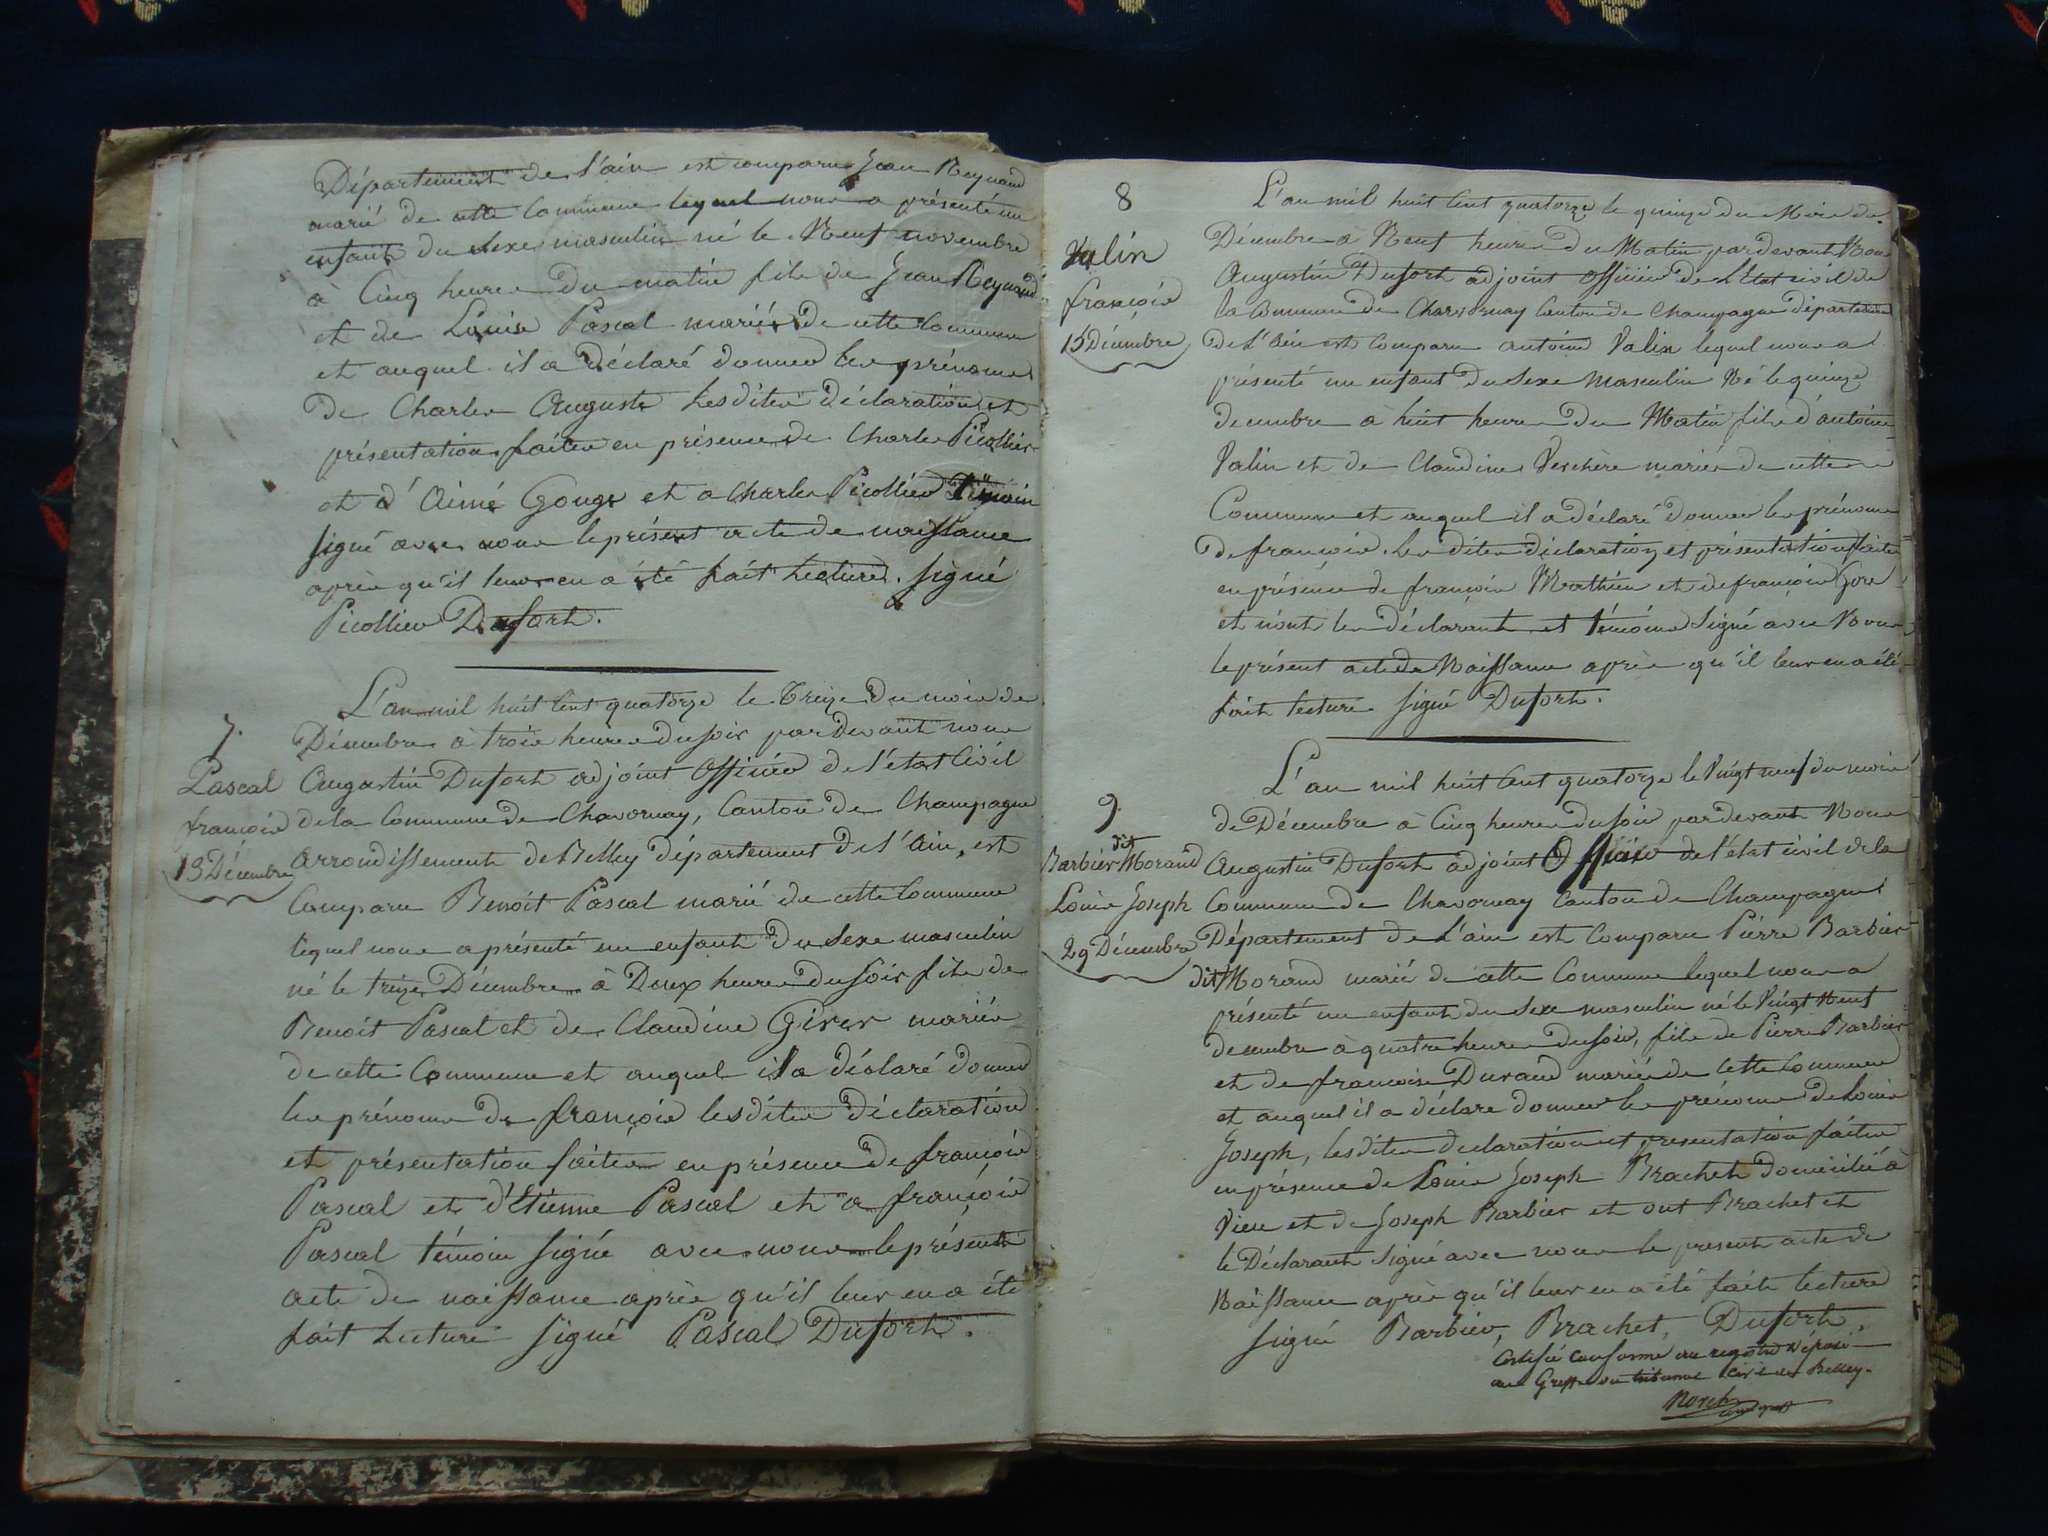 Département de l'ain est comparu Jean Reynaud
marié de cette Commune lequel nous a présenté un
enfant du sexe masculin né le Neuf novembre
à Cinq heures du matin fils de Jean Reynaud
et de Louise Pascal mariés de cette Commune
et auquel il a déclaré donner les prénoms
de Charles Auguste Lesdites déclaration et
présentation faites en présence de Charles Picollier
et d'Aimé Gouge et a Charles Picollier Témoin
signé avec nous le présent acte de naissance
après qu'il leur en a été fait Lecture. signé
Picollier Dufort.
L'an mil huit Cent quatorze le Treize du mois de
7.
Décembre à trois heures du soir pardevant nous
Pascal
Augustin Dufort adjoint Officier de l'état Civil
françois
de la Commune de Chavornay, Canton de Champagne
13 Décembre
arrondissement de Belley département de l'Ain, est
Comparu Benoit Pascal marié de cette Commune
lequel nous a présenté un enfant du sexe masculin
né le treize Décembre à Deux heures du soir fils de
Benoit Pascal et de Claudine Girer mariés
de cette Commune et auquel il a déclaré donner
les prénoms de françois lesdites déclaration
et présentation faites en présence de françois
Pascal et d'Etienne Pascal et a françois
Pascal témoin signé avec nous le présent
acte de naissance après qu'il leur en a été
fait Lecture signé Pascal Dufort.
8
Valin
françois
15 Décembre
L'an mil huit Cent quatorze le quinze du Mois de
Décembre à Neuf heures du Matin pardevant Nous
Augustin Dufort adjoint officier de L'Etat civil de
la Commune de Chavornay Canton de Champagne département
de L'Ain est Comparu antoine Valin lequel nous a
présenté un enfant du sexe Masculin Né le quinze
decembre à huit heures du Matin fils d'antoine
Valin et de Claudine Verchère mariés de cette
Commune et auquel il a déclaré donner les prénoms
de françois. Les dites déclaration et présentation faites
en présence de françois Mathieu et de françois Gore
et n'ont les déclarant et témoins signé avec Nous
le présent acte de Naissance après qu'il leur en a été
fait lecture signé Dufort.
L'an mil huit Cent quatorze le Vingt neuf du mois
9.
de Décembre à Cinq heures du soir pardevant Nous
Barbier dit Morand
Augustin Dufort adjoint Officier de l'état civil de la
Louis Joseph
Commune de Chavornay Canton de Champagne
29 Décembre
Département de L'ain est Comparu Pierre Barbier
dit Morand marié de cette Commune lequel nous a
présenté un enfant du sexe masculin né le Vingt Neuf
decembre à quatre heures du soir, fils de Pierre Barbier
et de francoise Durand mariés de cette Commune
et auquel il a déclare donner les prénoms de Louis
Joseph, lesdites declaration et presentation faites
en présence de Louis Joseph Brachet domicilié à
Vieu et de Joseph Barbier et ont Brachet et
le Déclarant signé avec nous le present acte de
Naissance après qu'il leur en a été faite lecture
signé Barbier, Brachet, Dufort.
Certifié conforme au registre déposé
au Greffe du tribunal Civil de Belley.